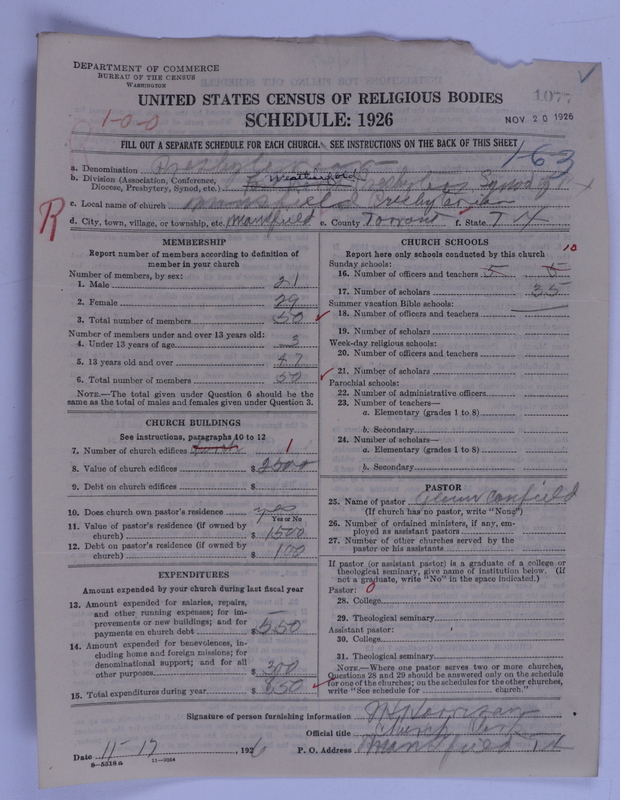 DEPARTMENT OF COMMERCE
BUREAU OF THE CENSUS
WASHINGTON
UNITED STATES CENSUS OF RELIGIOUS BODIES
1077
SCHEDULE: 1926
NOV 20 1926
1-0-0
FILL OUT A SEPARATE SCHEDULE FOR EACH CHURCH. SEE INSTRUCTIONS ON THE BACK OF THIS SHEET
163
a. Denomination
b. Division (Association, Conference, Weatherford
Diocese, Presbytery, Synod, etc.) Synod of
c. Local name of church Mansfield Presbyterian
R
d. City, town, village, or township, etc. Mansfield e. County Tarrant f. State T X
MEMBERSHIP
Report number of members according to definition of
member in your church
Number of members, by sex:
1. Male 21
2. Female 29
3. Total number of members 50
Number of members under and over 13 years old:
4. Under 13 years of age 3
5. 13 years old and over 47
6. Total number of members 50
NOTE.—The total given under Question 6 should be
same as the total of males and females given under Question 3.
CHURCH BUILDINGS
See instructions, paragraphs 10 to 12
7. Number of church edifices 1
8. Value of church edifices $ 2500
9. Debt on church edifices $
10. Does church own pastor's residence yes
Yes or No
11. Value of pastor's residence (if owned by
church) $ 1500
12. Debt on pastor's residence (if owned by
church) $ 100
EXPENDITURES
Amount expended by your church during last fiscal year
13. Amount expended for salaries, repairs,
and other running expenses; for im-
provements or new buildings; and for
payments on church debt $ 550
14. Amount expended for benevolences, in-
cluding home and foreign missions; for
denominational support; and for all
other purposes $ 300
15. Total expenditures during year $ 850
CHURCH SCHOOLS
Report here only schools conducted by this church
Sunday schools: 10
16. Number of officers and teachers 5 5
17. Number of scholars 35
Summer vacation Bible schools:
18. Number of officers and teachers
19. Number of scholars
Week-day religious schools:
20. Number of officers and teachers
21. Number of scholars
Parochial schools:
22. Number of administrative officers
23. Number of teachers—
a. Elementary (grades 1 to 8)
b. Secondary
24. Number of scholars—
a. Elementary (grades 1 to 8)
b. Secondary
PASTOR
25. Name of pastor Glenn Canfield
(If church has no pastor, write "None")
26. Number of ordained ministers, if any, em-
ployed as assistant pastors
27. Number of other churches served by the
pastor or his assistants
If pastor (or assistant pastor) is a graduate of a college or
theological seminary, give name of institution below. (If
not a graduate, write "No" in the space indicated.)
Pastor: 0
28. College
29. Theological seminary
Assistant pastor:
30. College
31. Theological seminary
NOTE.—Where one pastor serves two or more churches,
Questions 28 and 29 should be answered only on the schedule
for one of the churches; on the schedules for the other churches,
write "See schedule for church."
Signature of person furnishing information
Official title Church Clerk
Date 11-17, 1926 P. O. Address Mansfield TX
8-5518a 11-9264